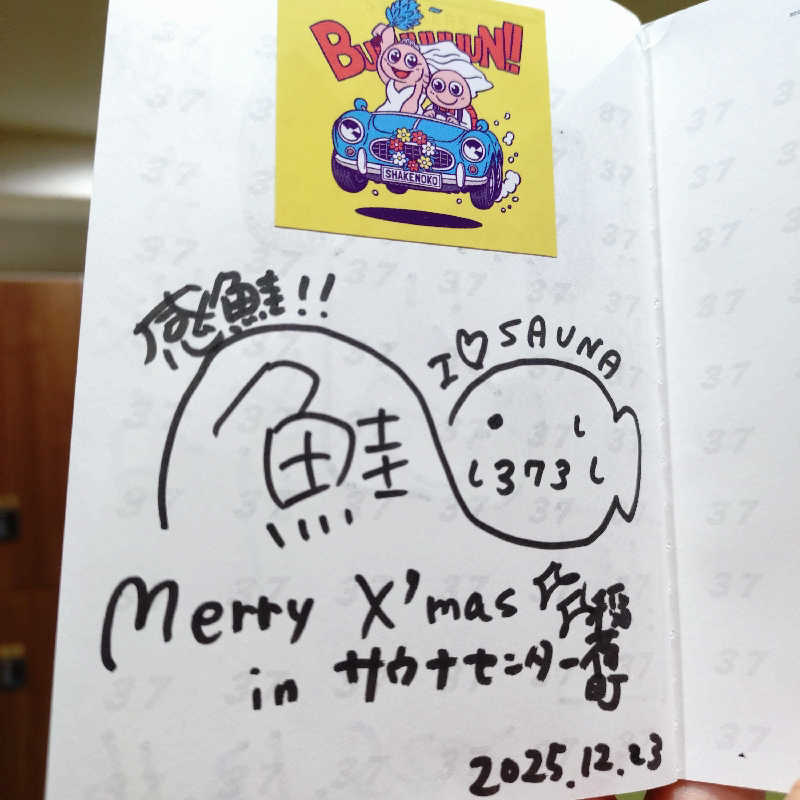 BUUUUUUN!!
SHAKENOKO
感鮭!!
I♡SAUNA
鮭
し373し
Merry X'mas
in サウナセンター稲荷町
2025.12.23